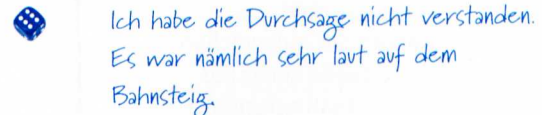 Ich habe die Durchsage nicht verstanden.
Es war nämlich sehr laut auf dem
Bahnsteig.